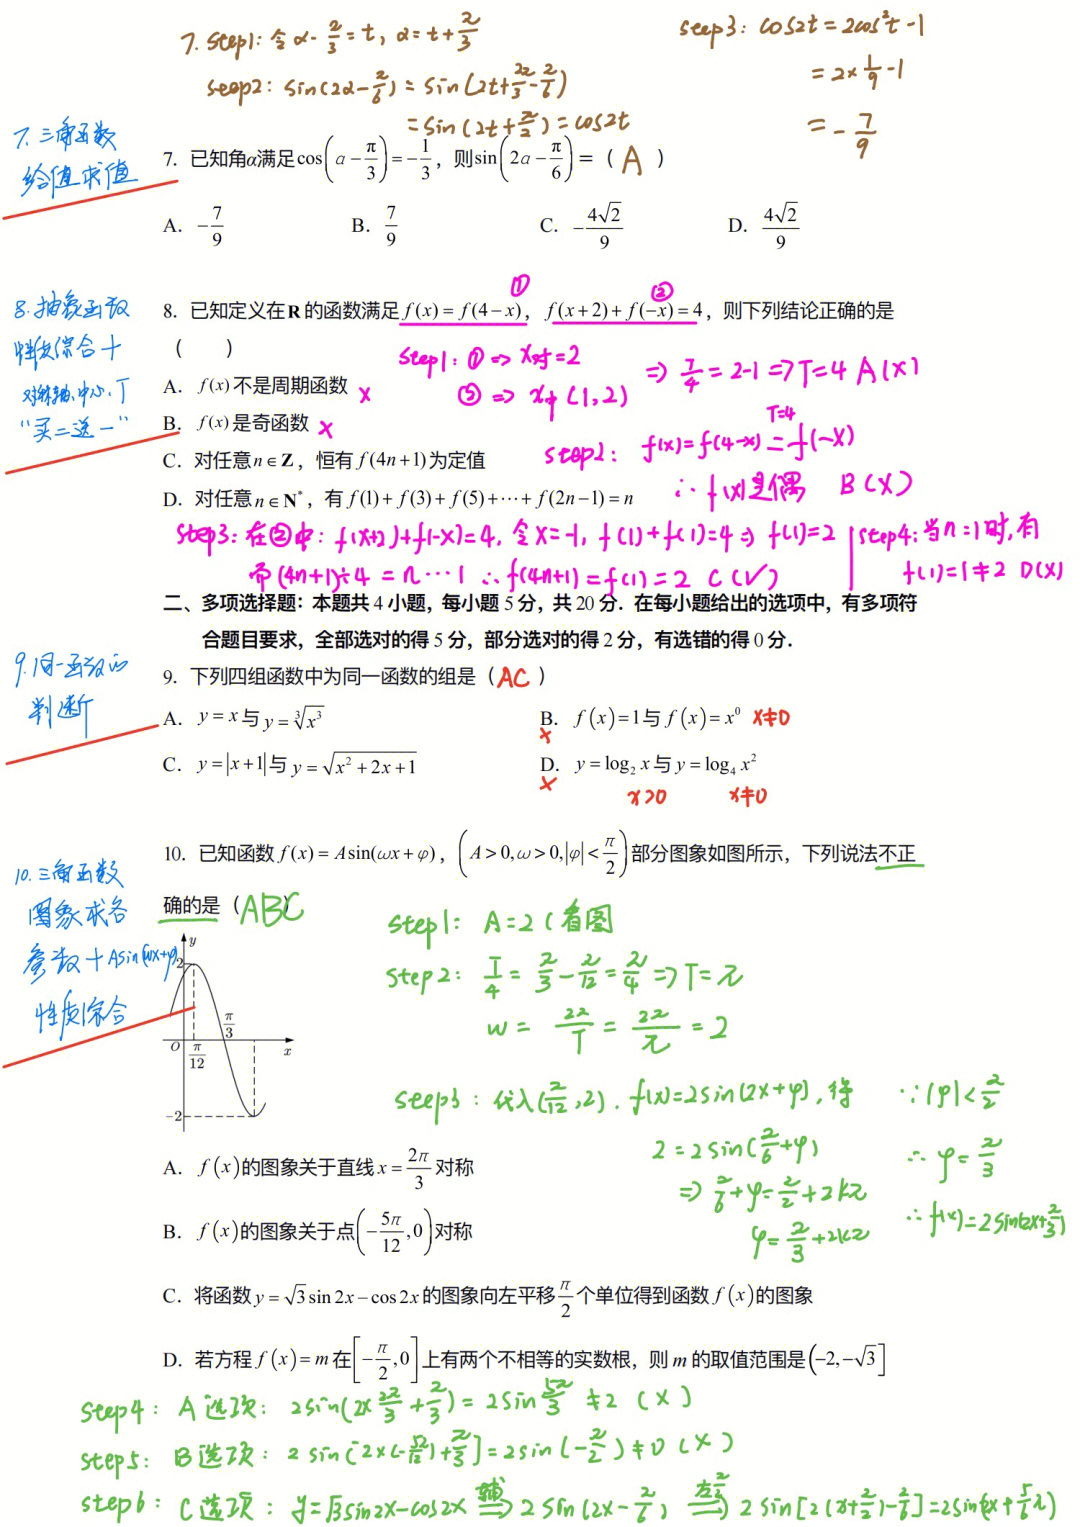 7. step1: 令 α - π/3 = t, α = t + π/3
step2: sin(2α - π/6) = sin(2t + 2π/3 - π/6)
= sin(2t + π/2) = cos2t
step3: cos2t = 2cos²t - 1
= 2×1/9 - 1
= -7/9
7. 三角函数
给值求值
7. 已知角α满足cos(α - π/3) = -1/3，则sin(2α - π/6) =（ A ）
A. -7/9 B. 7/9 C. -4√2/9 D. 4√2/9
8. 抽象函数
性质综合+
对称轴、中心、T
“买二送一”
8. 已知定义在R的函数满足f(x) = f(4-x)，f(x+2) + f(-x) = 4，则下列结论正确的是
① ②
（ ）
A. f(x)不是周期函数 ×
B. f(x)是奇函数 ×
C. 对任意n∈Z，恒有f(4n+1)为定值
D. 对任意n∈N*，有f(1)+f(3)+f(5)+⋯+f(2n-1)=n
step1: ① => x对 = 2
② => x中 (1,2)
=> T/4 = 2-1 => T=4 A(×)
step2: f(x) = f(4-x) = f(-x)
T=4
∴ f(x)是偶 B(×)
step3: 在②中: f(x+2)+f(-x)=4, 令x=-1, f(1)+f(1)=4 => f(1)=2
而(4n+1)÷4 = n⋯1 ∴ f(4n+1) = f(1) = 2 C(√)
step4: 当n=1时, 有
f(1)=1≠2 D(×)
二、多项选择题：本题共4小题，每小题5分，共20分．在每小题给出的选项中，有多项符
合题目要求，全部选对的得5分，部分选对的得2分，有选错的得0分．
9. 同一函数的
判断
9. 下列四组函数中为同一函数的组是（ AC ）
A. y = x与y = ∛x³ B. f(x) = 1与f(x) = x⁰ x≠0
×
C. y = |x+1|与y = √(x²+2x+1) D. y = log₂x与y = log₄x²
× x>0 x≠0
10. 三角函数
图象求各
参数+Asin(ωx+φ)
性质综合
10. 已知函数f(x) = Asin(ωx+φ)，(A>0, ω>0, |φ|<π/2)部分图象如图所示，下列说法不正
确的是（ ABC
y
2
π/3
O
π/12
x
-2
step1: A=2 (看图
step2: T/4 = π/3 - π/12 = π/4 => T=π
w = 2π/T = 2π/π = 2
step3: 代入(π/12, 2). f(x)=2sin(2x+φ), 得
2 = 2sin(π/6+φ)
=> π/6+φ = π/2+2kπ
φ = π/3+2kπ
∵ |φ|<π/2
∴ φ = π/3
∴ f(x)=2sin(2x+π/3)
A. f(x)的图象关于直线x = 2π/3对称
B. f(x)的图象关于点(-5π/12, 0)对称
C. 将函数y = √3sin2x - cos2x的图象向左平移π/2个单位得到函数f(x)的图象
D. 若方程f(x) = m在[-π/2, 0]上有两个不相等的实数根，则m的取值范围是(-2, -√3]
step4: A选项: 2sin(2×2π/3+π/3) = 2sin5π/3 ≠2 (×)
step5: B选项: 2sin[2×(-5π/12)+π/3] = 2sin(-π/2) ≠0 (×)
step6: C选项: y=√3sin2x-cos2x 辅=> 2sin(2x-π/6) 左π/2=> 2sin[2(x+π/2)-π/6]=2sin(2x+5/6π)